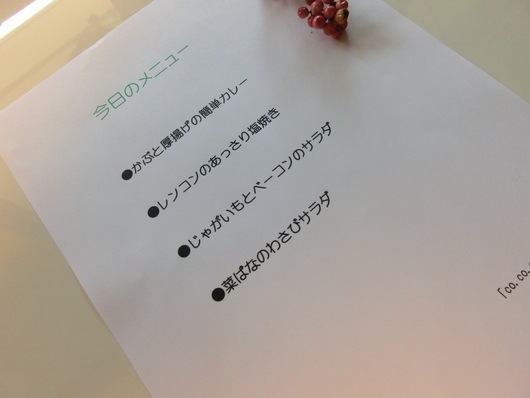 今日のメニュー
●かぶと厚揚げの簡単カレー
●レンコンのあっさり塩焼き
●じゃがいもとベーコンのサラダ
●菜ばなのわさびサラダ
「co.co.